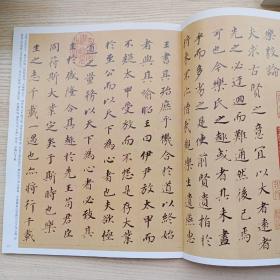 樂毅論
夫求古賢之意宜以大者遠者
先之必迂迴而難通然後已焉
可也今樂氏之趣或者其未盡
乎而多劣之是使前賢遺指於
將來不亦惜哉觀樂生遺燕惠
王書其殆庶乎機合於道以終始
者與其喻昭王曰伊尹放太甲而
不疑太甲受放而不怨是存大業
於至公而以天下為心者也夫欲極
道之量務以天下為心者必致其
主於盛隆合其趣於先王苟君臣
同符斯大業定矣于斯時也樂
生之志千載一遇也亦將行千載